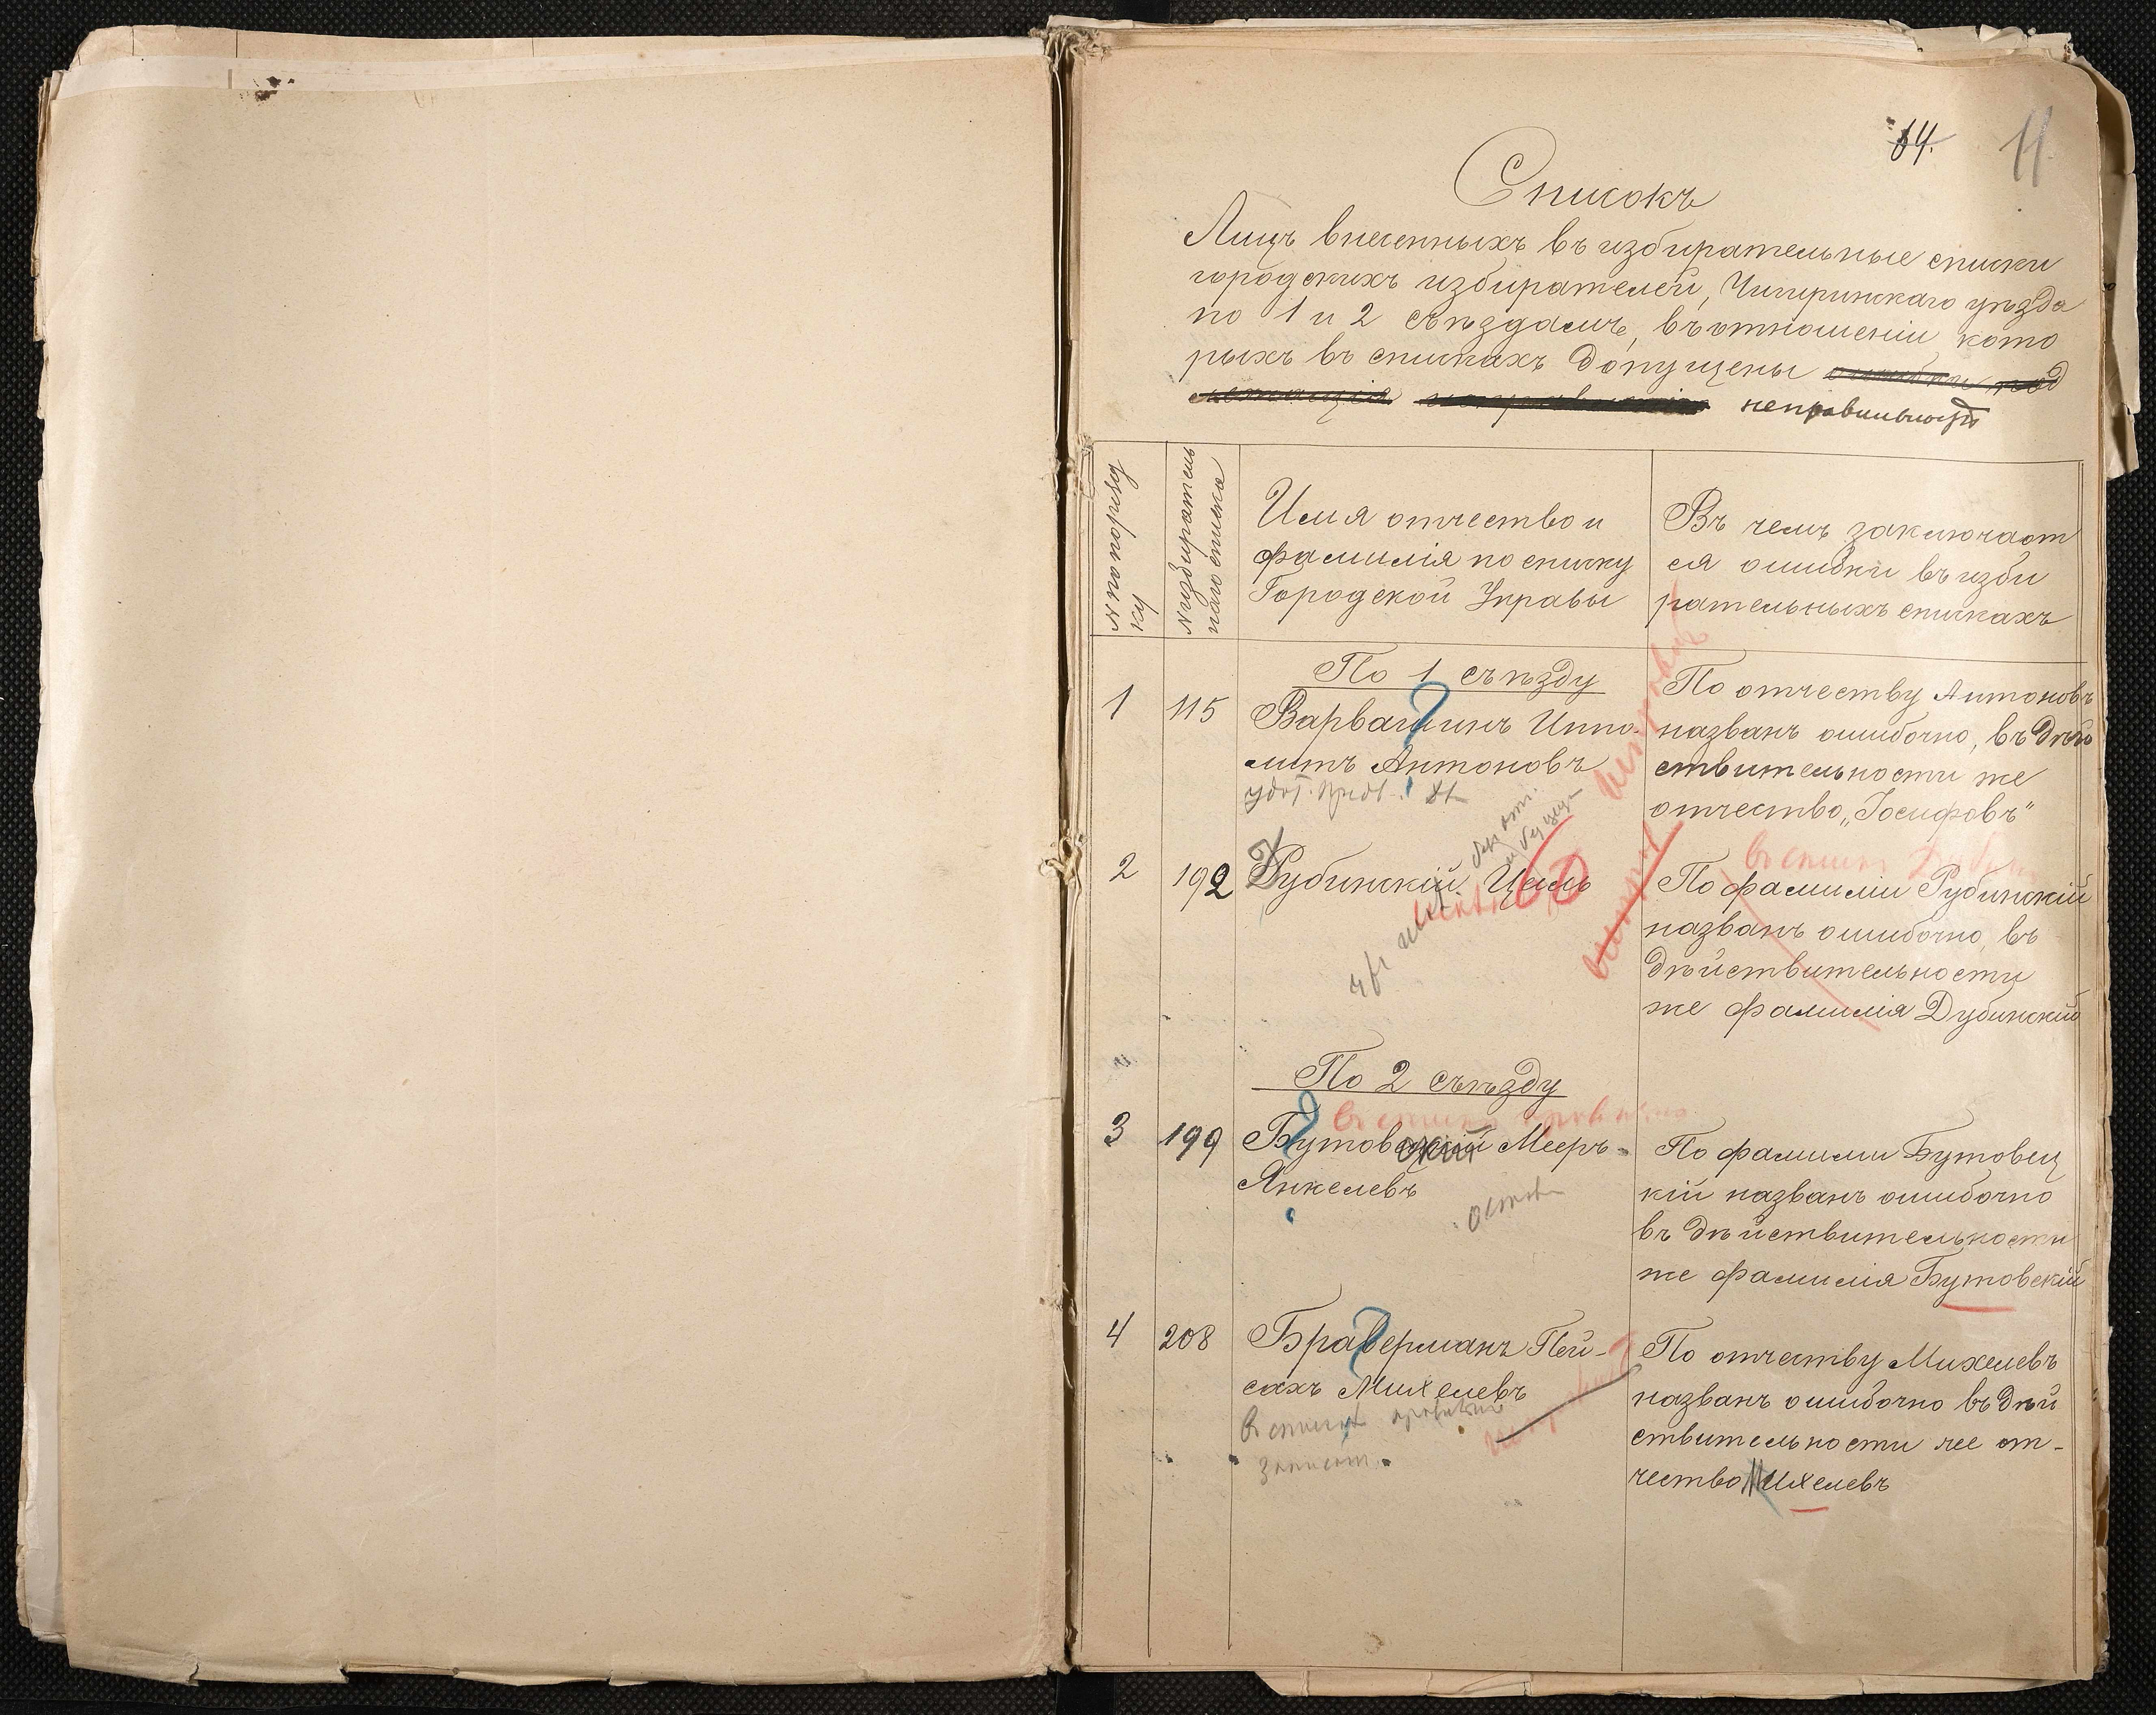 64.
11.
Списокъ
Лицъ внесенныхъ въ избирательные списки
городскихъ избирателей, Чигиринскаго уѣзда
по 1 и 2 съѣздамъ, въ отношеніи кото
рыхъ въ спискахъ допущены ошибки под
неправильности
№ по порядку
№ избирательнаго списка
Имя отчество и
фамилія по списку
Городской Управы
Въ чемъ заключают
ся ошибки въ изби
рательныхъ спискахъ
По 1 съѣзду
1
115
Варвашинъ Иппо-
литъ Антоновъ
По отчеству Антоновъ
названъ ошибочно, въ дѣй
ствительности же
отчество „Іосифовъ"
2
192
Рубинскій Цаль
По фамиліи Рубинскій
названъ ошибочно, въ
дѣйствительности
же фамилія Дубинскій
По 2 съѣзду
3
199
Бутовецкій Мееръ-
Янкелевъ
По фамиліи Бутовец
кій названъ ошибочно
въ дѣйствительности
же фамилія Бутовскій
4
208
Браверманъ Пей-
сахъ Михелевъ
въ списке
записан.
По отчеству Михелевъ
названъ ошибочно въ дѣй
ствительности же от-
чество Ихелевъ